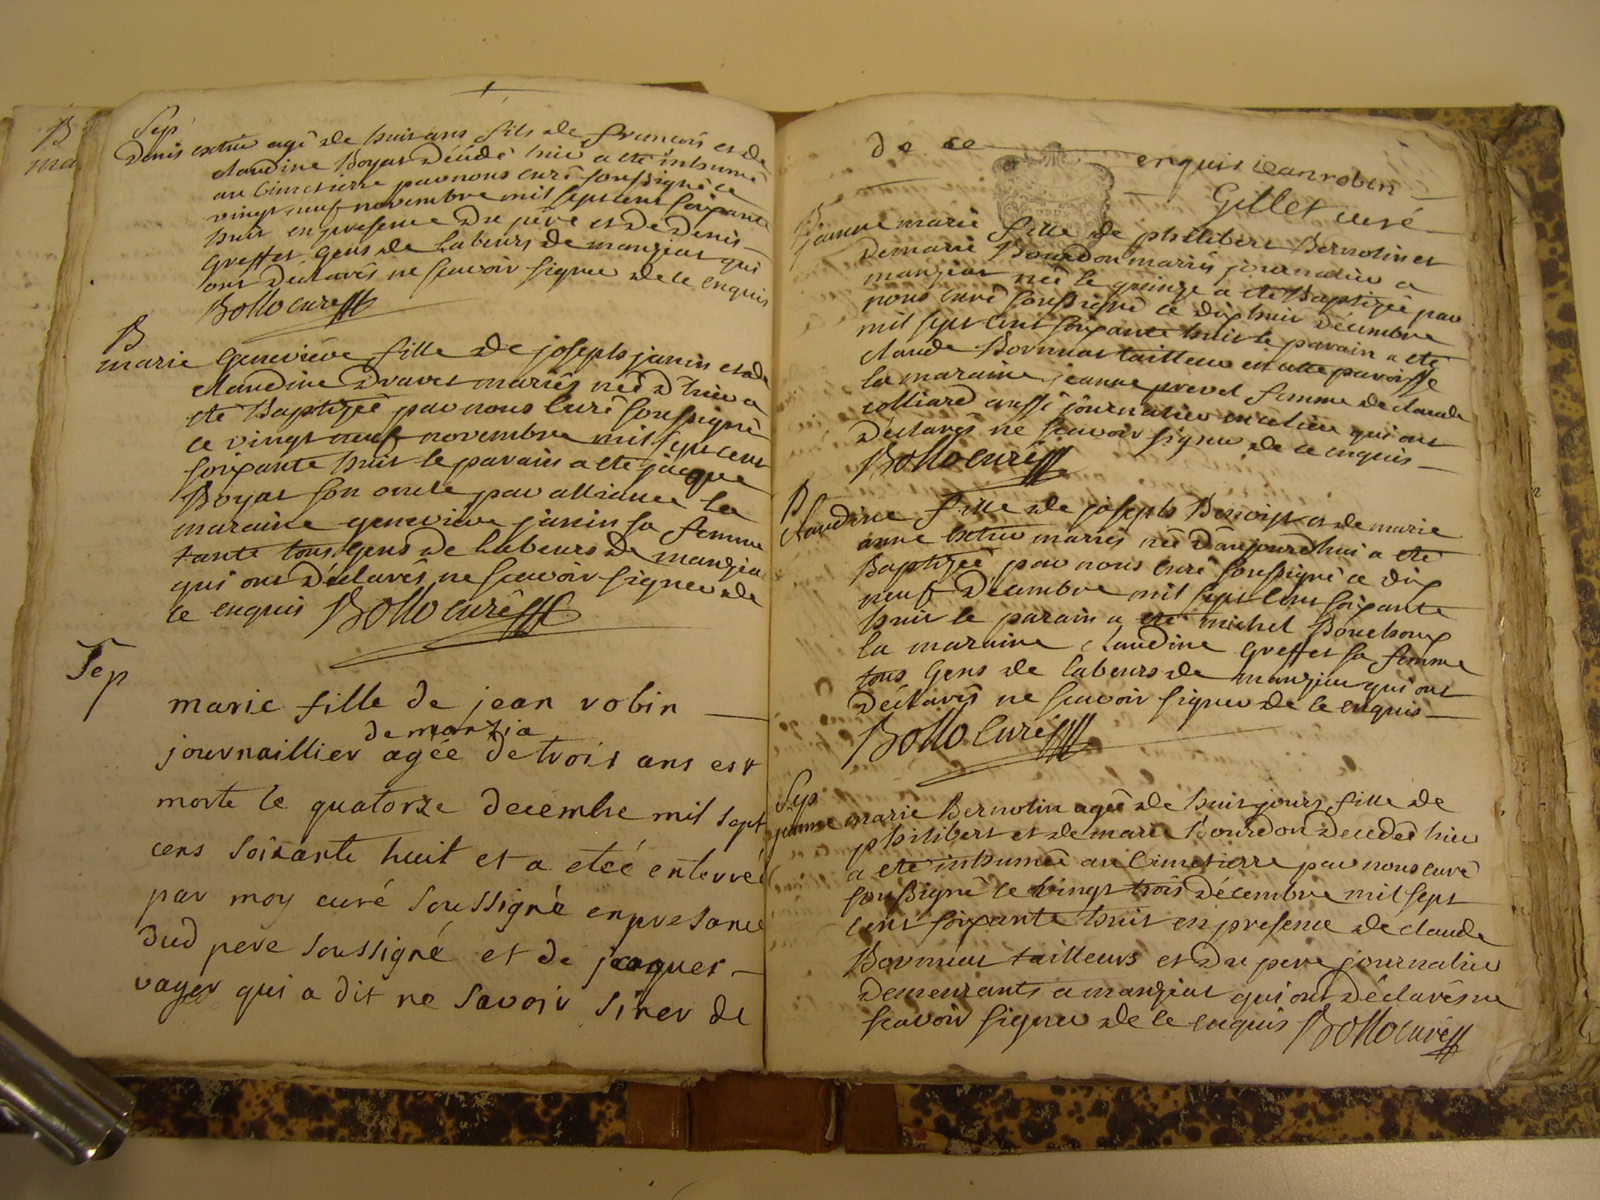 B
ma
Sep
Denis extru agé de huit ans fils de francois et de
claudine Boyat décédé hier a eté inhumé
au Cimetierre par nous curé soussigné ce
vingt neuf novembre mil sept cent soixante
huit en presence du père et de Denis
Greffet gens de Labeurs de manziat qui
ont declarés ne scavoir signer de ce enquis
Bollo curé
B
marie Genevieve fille de joseph janin et de
claudine Dravet mariés née d'hier a
eté Baptizée par nous Curé soussigné
ce vingt neuf novembre mil sept cent
soixante huit le parain a eté jacque
Boyat son oncle par alliance la
maraine genevieve janin sa femme
tante tous gens de Labeurs de manzia
qui ont déclarés ne scavoir signer de
ce enquis Bollo curé
Sep
marie fille de jean robin
de manzia
journaillier agée de trois ans est
morte le quatorze decembre mil sept
cens soixante huit et a eteé enterreé
par moy curé soussigné en presance
dud pere soussigné et de jacques
vager qui a dit ne savoir siner de
de ce enquis jean robin
Gillet curé
B
jeanne marie fille de philibert Bernolin et
de marie Bourdon mariés journalier a
manziat née le quinze a eté Baptizée par
nous curé soussigné ce dix huit décembre
mil sept cent soixante huit le parain a eté
claude Bornuat tailleur en cette paroisse
la maraine jeanne prevel femme de claude
colliard aussi journalier en ce lieu qui ont
déclarés ne scavoir signer de ce enquis
Bollo curé
B
claudine fille de joseph Benoist et de marie
anne extru mariés née d'aujourdhui a eté
Baptizée par nous curé soussigné ce dix
neuf Décembre mil sept cent soixante
huit le parain a eté michel Bouchoux
la maraine claudine greffet sa femme
tous gens de labeurs de manziat qui ont
déclarés ne scavoir signer de ce enquis
Bollo Curé
Sep
jeanne marie Bernolin agée de huit jours fille de
philibert et de marie Bourdon decedeé hier
a eté inhumeé au Cimetierre par nous curé
soussigné le vingt trois décembre mil sept
cent soixante huit en presence de claude
Bornuat tailleurs et du pere journalier
demeurants a manziat qui ont déclarés ne
scavoir signer de ce enquis Bollo curé